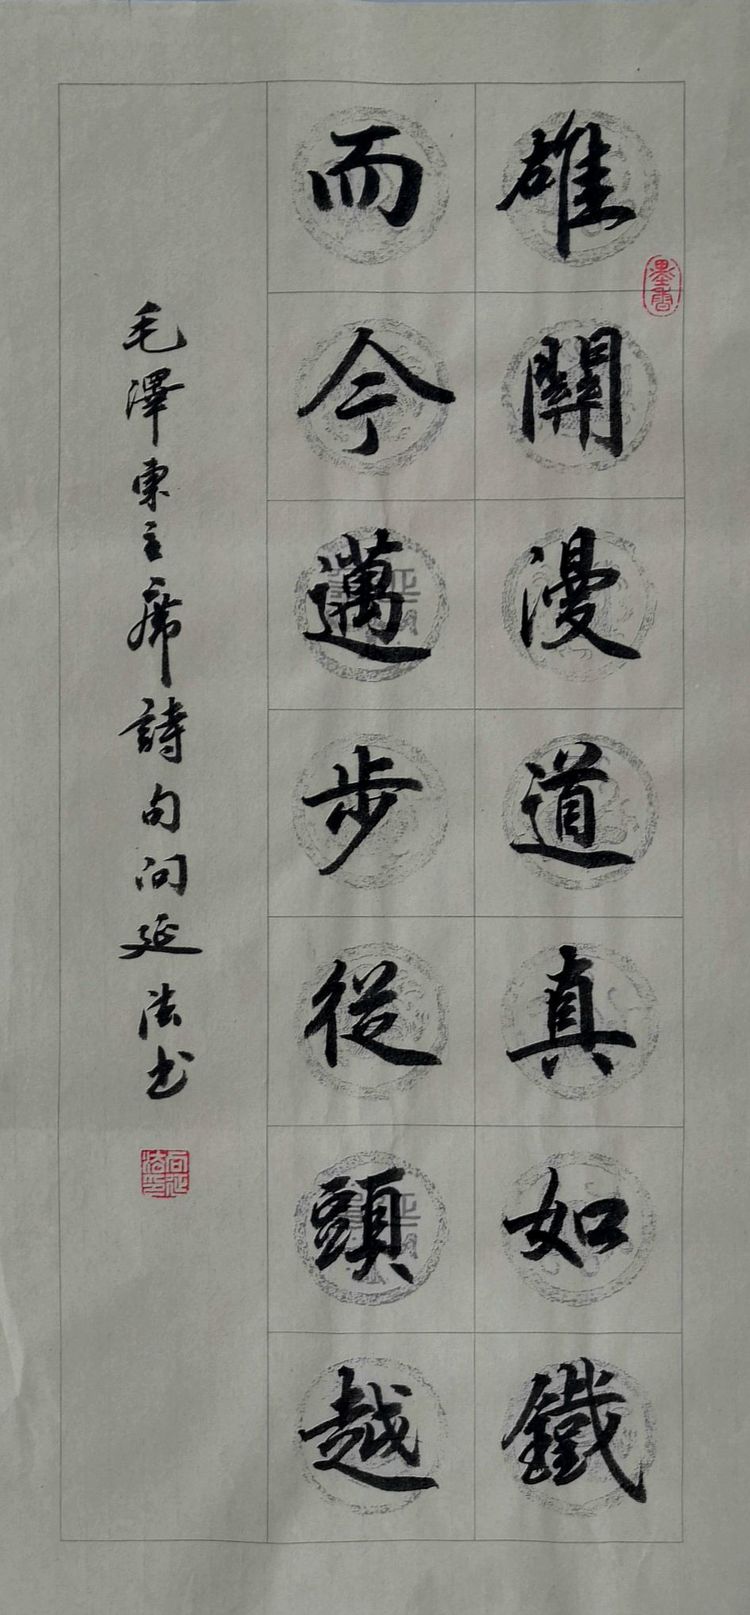 雄關漫道真如鐵
而今邁步從頭越
毛澤東主席詩句問延法书
墨香